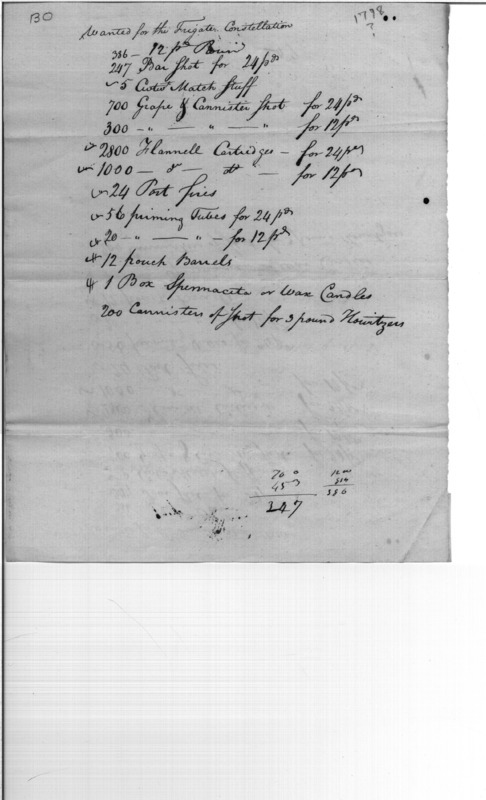 130
1798
?
Wanted for the Frigate Constellation
386 — 12 pds
247 Bar Shot for 24 pds
5 Cwt Match Stuff
700 Grape & Cannister Shot for 24 pds
300 — " — " — " for 12 pds
2800 Flannell Cartridges — for 24 pds
1000 — do — do — for 12 pds
24 Port fires
56 priming Tubes for 24 pds
20 — " — " — for 12 pds
12 pouch Barrels
1 Box Spermaceta or Wax Candles
200 Cannisters of Shot for 3 pound Howitzers
70 0
45 3
247
386